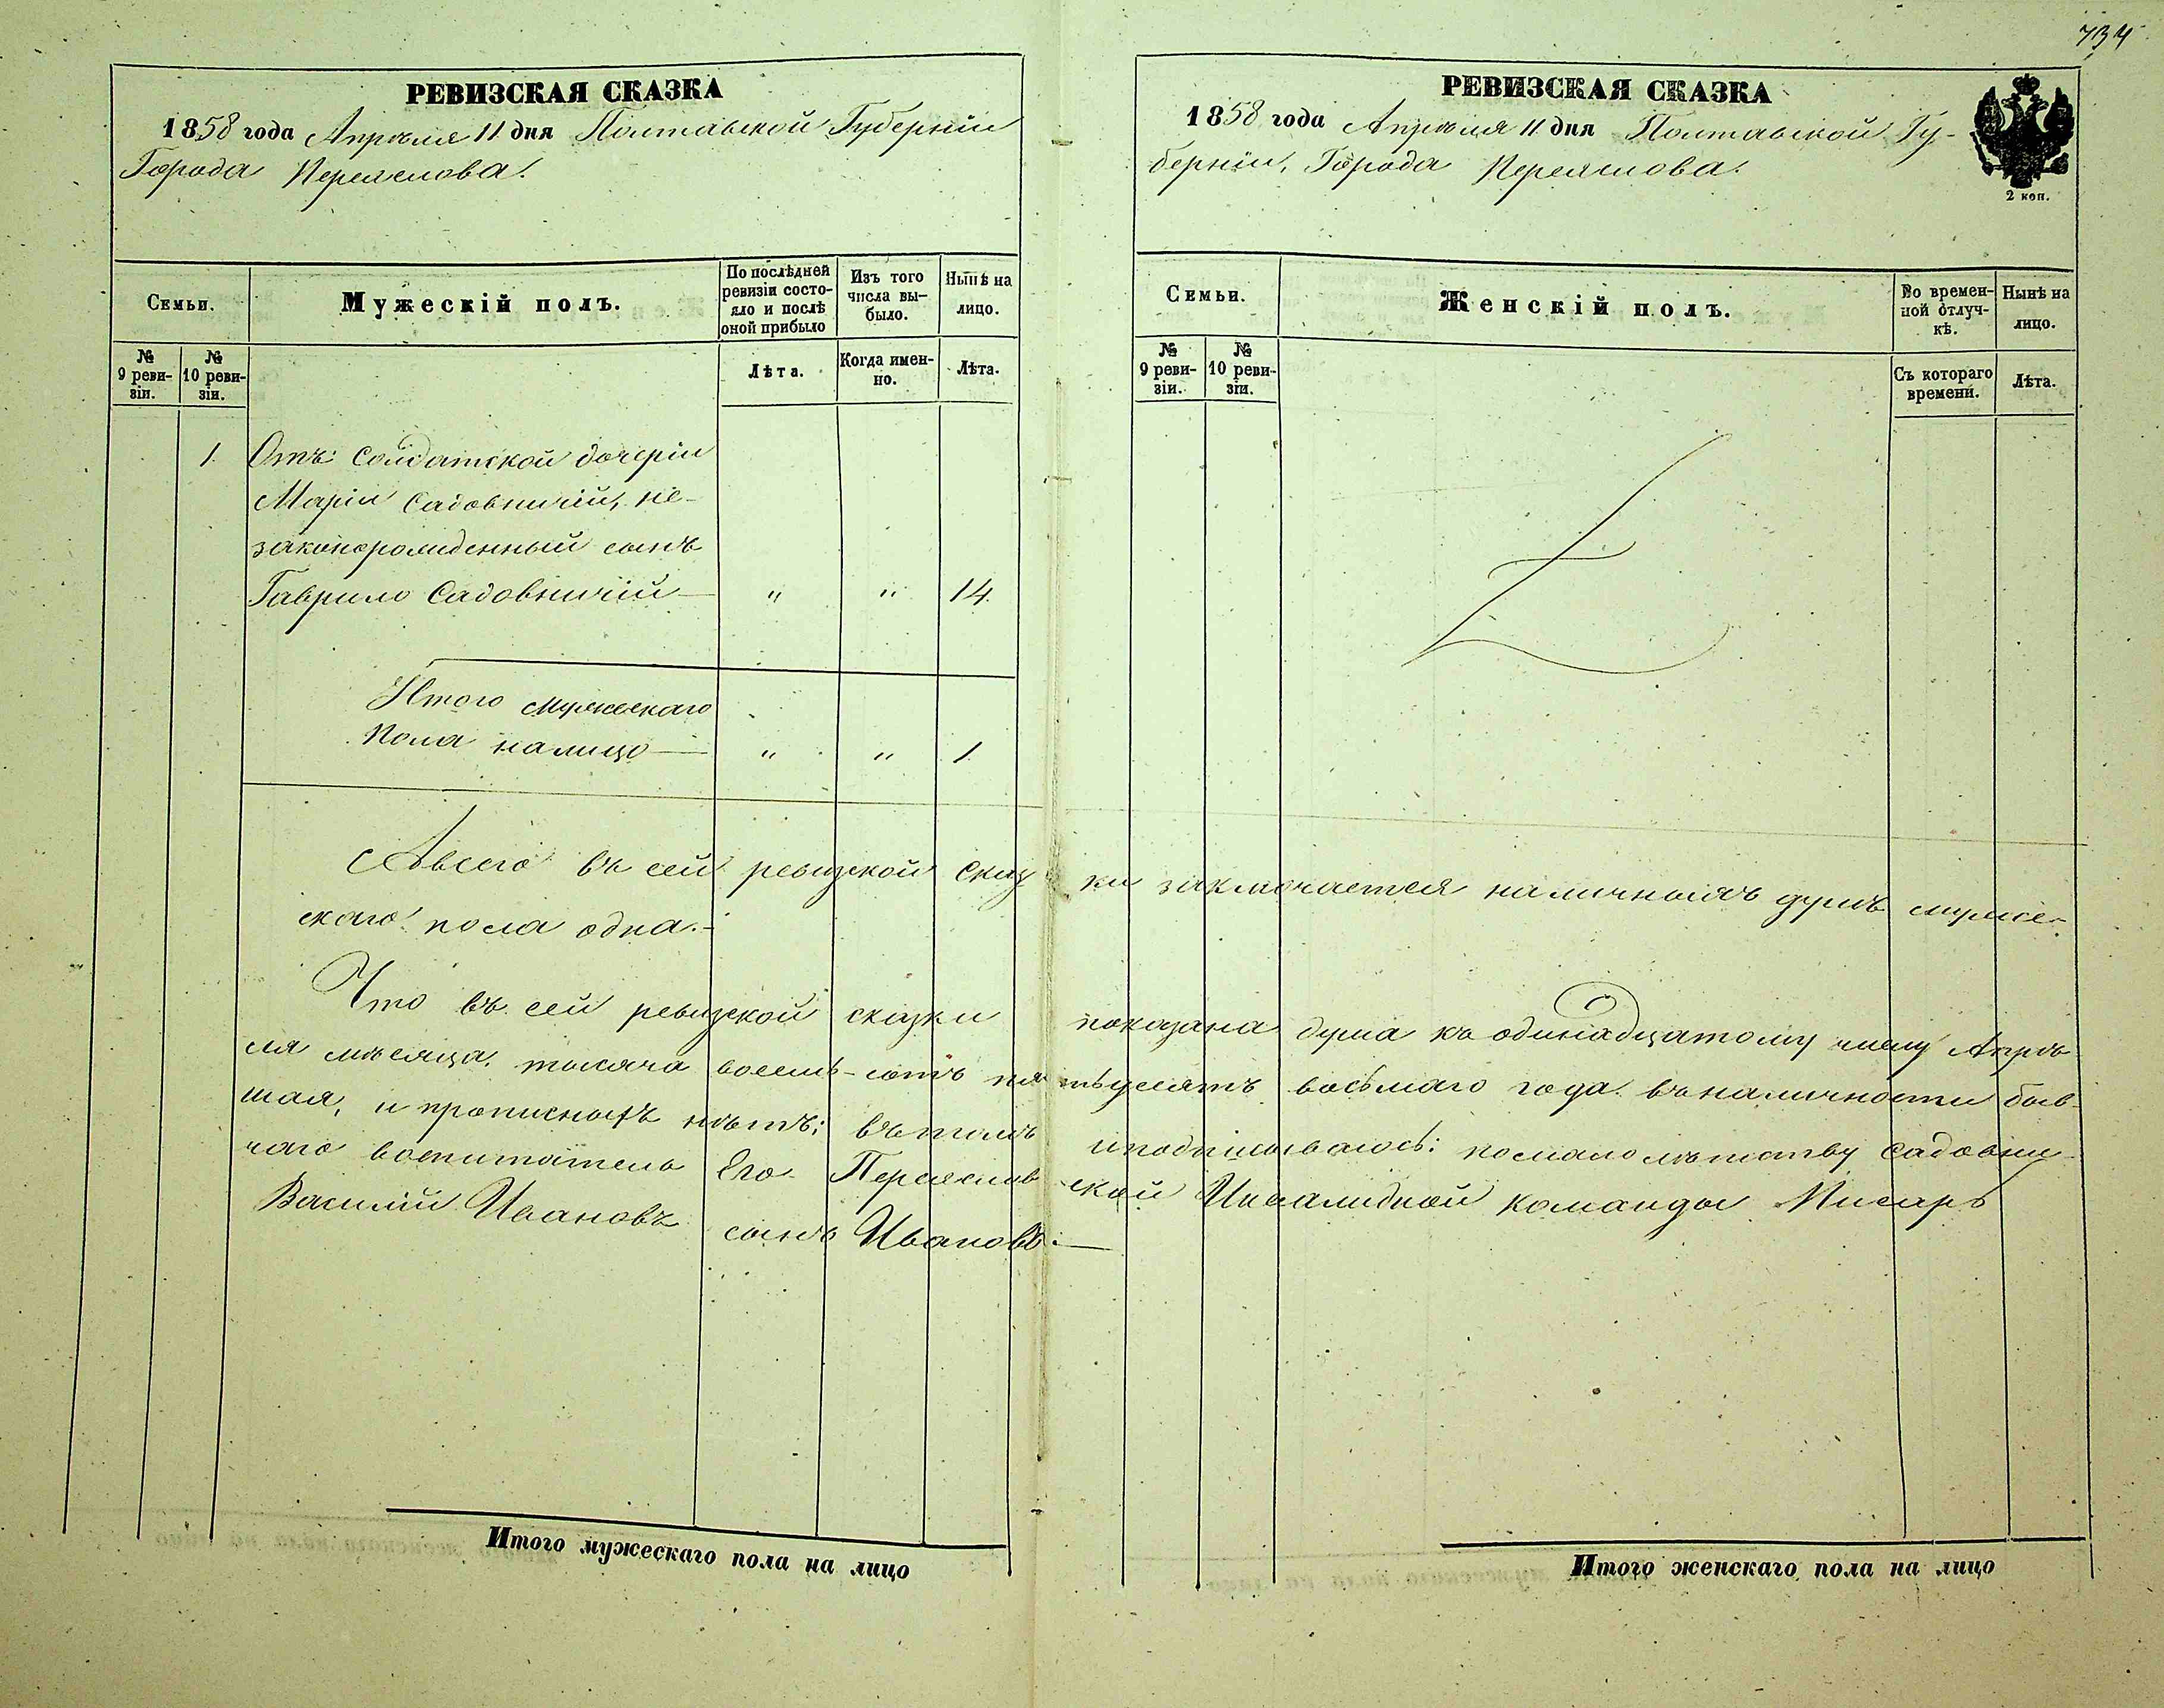 734
РЕВИЗСКАЯ СКАЗКА
1858 года Апрѣля 11 дня Полтавской Губерніи
Города Переяслова.
Семьи.
Мужескій полъ.
По послѣдней
ревизіи состо-
яло и послѣ
оной прибыло
Изъ того
числа вы-
было.
Нынѣ на
лицо.
№
9 реви-
зіи.
№
10 реви-
зіи.
Лѣта.
Когда имен-
но.
Лѣта.
1. Отъ Солдатской дочеріи
Маріи Садовничій, не-
законорожденный сынъ
Гаврило Садовничій — " " 14.
Итого мужескаго
пола налицо — " " 1.
РЕВИЗСКАЯ СКАЗКА
1858 года Апрѣля 11 дня Полтавской Гу-
берніи, Города Переяслова.
2 коп.
Семьи.
Женскій полъ.
Во времен-
ной отлуч-
кѣ.
Нынѣ на
лицо.
№
9 реви-
зіи.
№
10 реви-
зіи.
Съ котораго
времени.
Лѣта.
А всего въ сей ревизской сказки заключается наличныхъ душъ муже-
скаго пола одна.—
Что въ сей ревизской сказки показана душа къ одинадцатому числу Апрѣ
ля мѣсяца тысяча восемь-сотъ пятьдесятъ восьмаго года въ наличности быв-
шая, и прописныхъ нѣтъ; въ томъ и подписываюсь: по малолѣтству Садовни-
чаго воспитатель Его Переяславской Инвалидной команды Писарь
Василій Ивановъ сынъ Ивановъ.—
Итого мужескаго пола на лицо
Итого женскаго пола на лицо